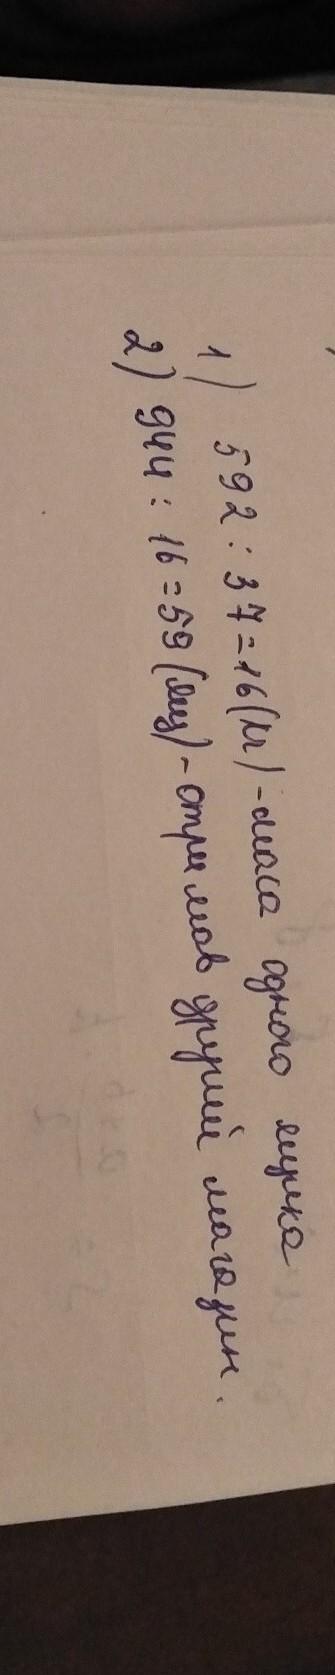 1) 592 : 37 = 16 (кг) - маса одного ящика
2) 944 : 16 = 59 (ящ) - отримав другий магазин.